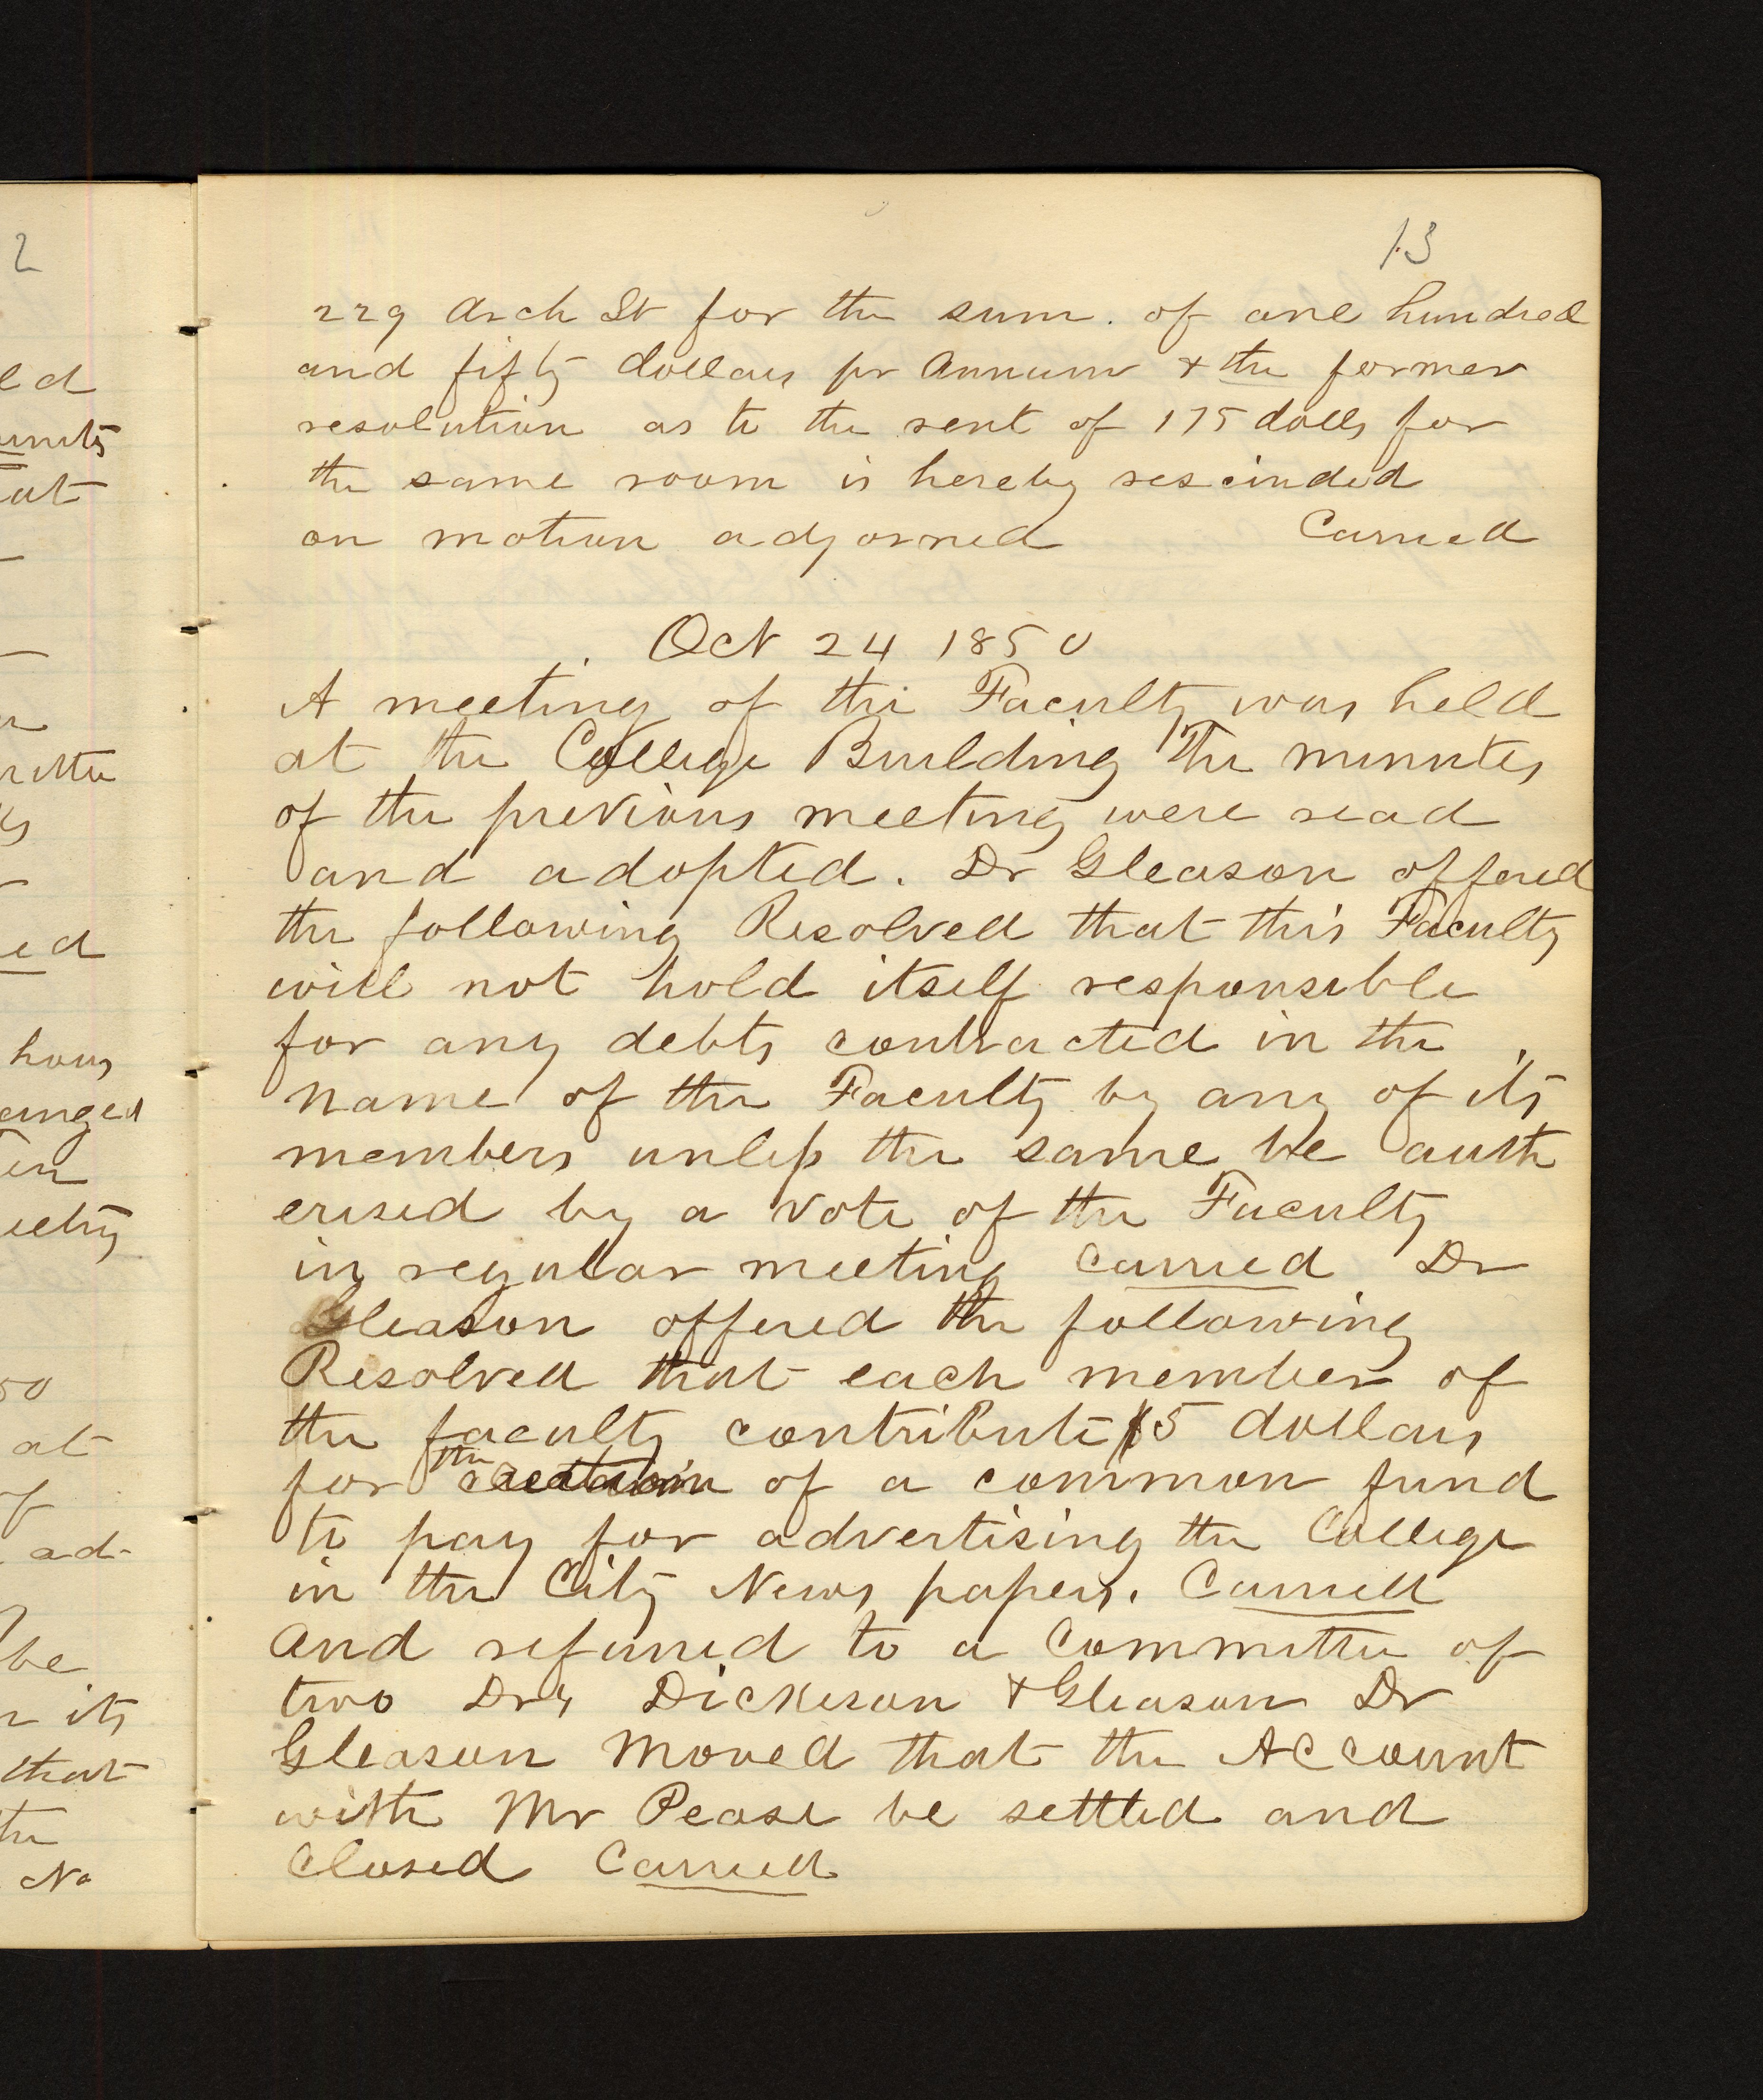 13
229 Arch St for the sum. of one hundred
and fifty dollars pr Annum & the former
resolution as to the rent of 175 dolls for
the same room is hereby rescinded
on motion adjorned Carried
Oct 24 1850
A meeting of the Faculty was held
at the College Building The minutes
of the previous meeting were read
and adopted. Dr Gleason offered
the following Resolved that this Faculty
will not hold itself responsible
for any debts contracted in the
name of the Faculty by any of its
members unless the same be auth
erised by a vote of the Faculty
in regular meeting Carried Dr
Gleason offered the following
Resolved that each member of
the faculty contribute 5 dollars
for the creation of a common fund
to pay for advertising the College
in the City News papers. Carried
and referred to a Committee of
two Drs Dickeson & Gleason Dr
Gleason moved that the Account
with Mr Pease be settled and
Closed Carried
2
ld
at
ed
hour
anged
50
at
of
ad-
be
its
that
the
No